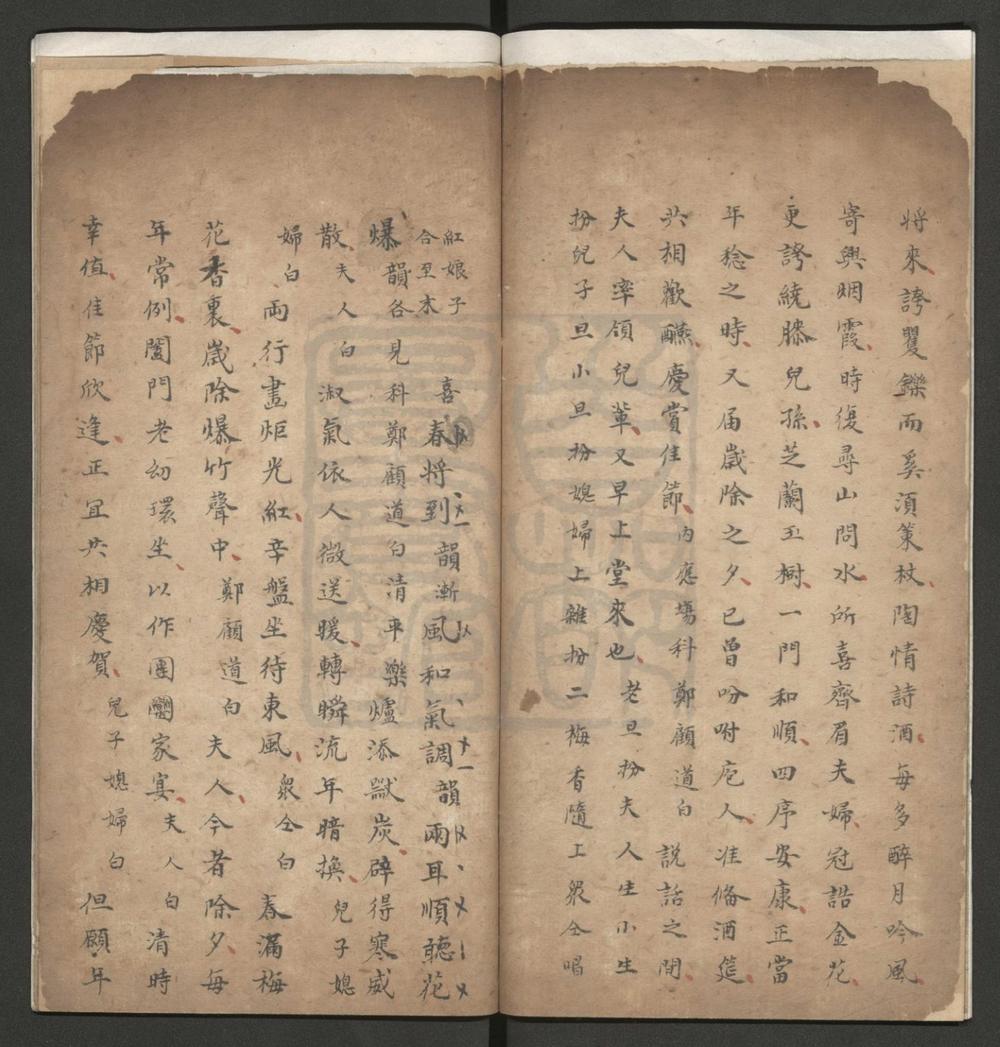 将来誇矍鑠而奚須策杖陶情詩酒每多醉月吟風
寄興烟霞時復尋山問水所喜齊眉夫婦冠誥金花
更誇繞膝兒孫芝蘭玉樹一門和順四序安康正當
年稔之時又屆歲除之夕已曾吩咐庖人准偹酒筵
共相歡醼慶賞佳節內應塲科鄭顧道白說話之間
夫人率領兒輩又早上堂來也老旦扮夫人生小生
扮兒子旦小旦扮媳婦上雜扮二梅香隨上衆仝唱
紅娘子
合至末
喜春將到韻漸風和氣調韻兩耳順聽花
爆韻各見科鄭顧道白清平樂爐添獸炭辟得寒威
散夫人白淑氣依人微送暖轉瞬流年暗換兒子媳
婦白兩行畫炬光紅辛盤坐待東風衆仝白春滿梅
花香裏歲除爆竹聲中鄭顧道白夫人今者除夕每
年常例闔門老幼環坐以作團圞家宴夫人白清時
幸值佳節欣逢正宜共相慶賀兒子媳婦白但願年